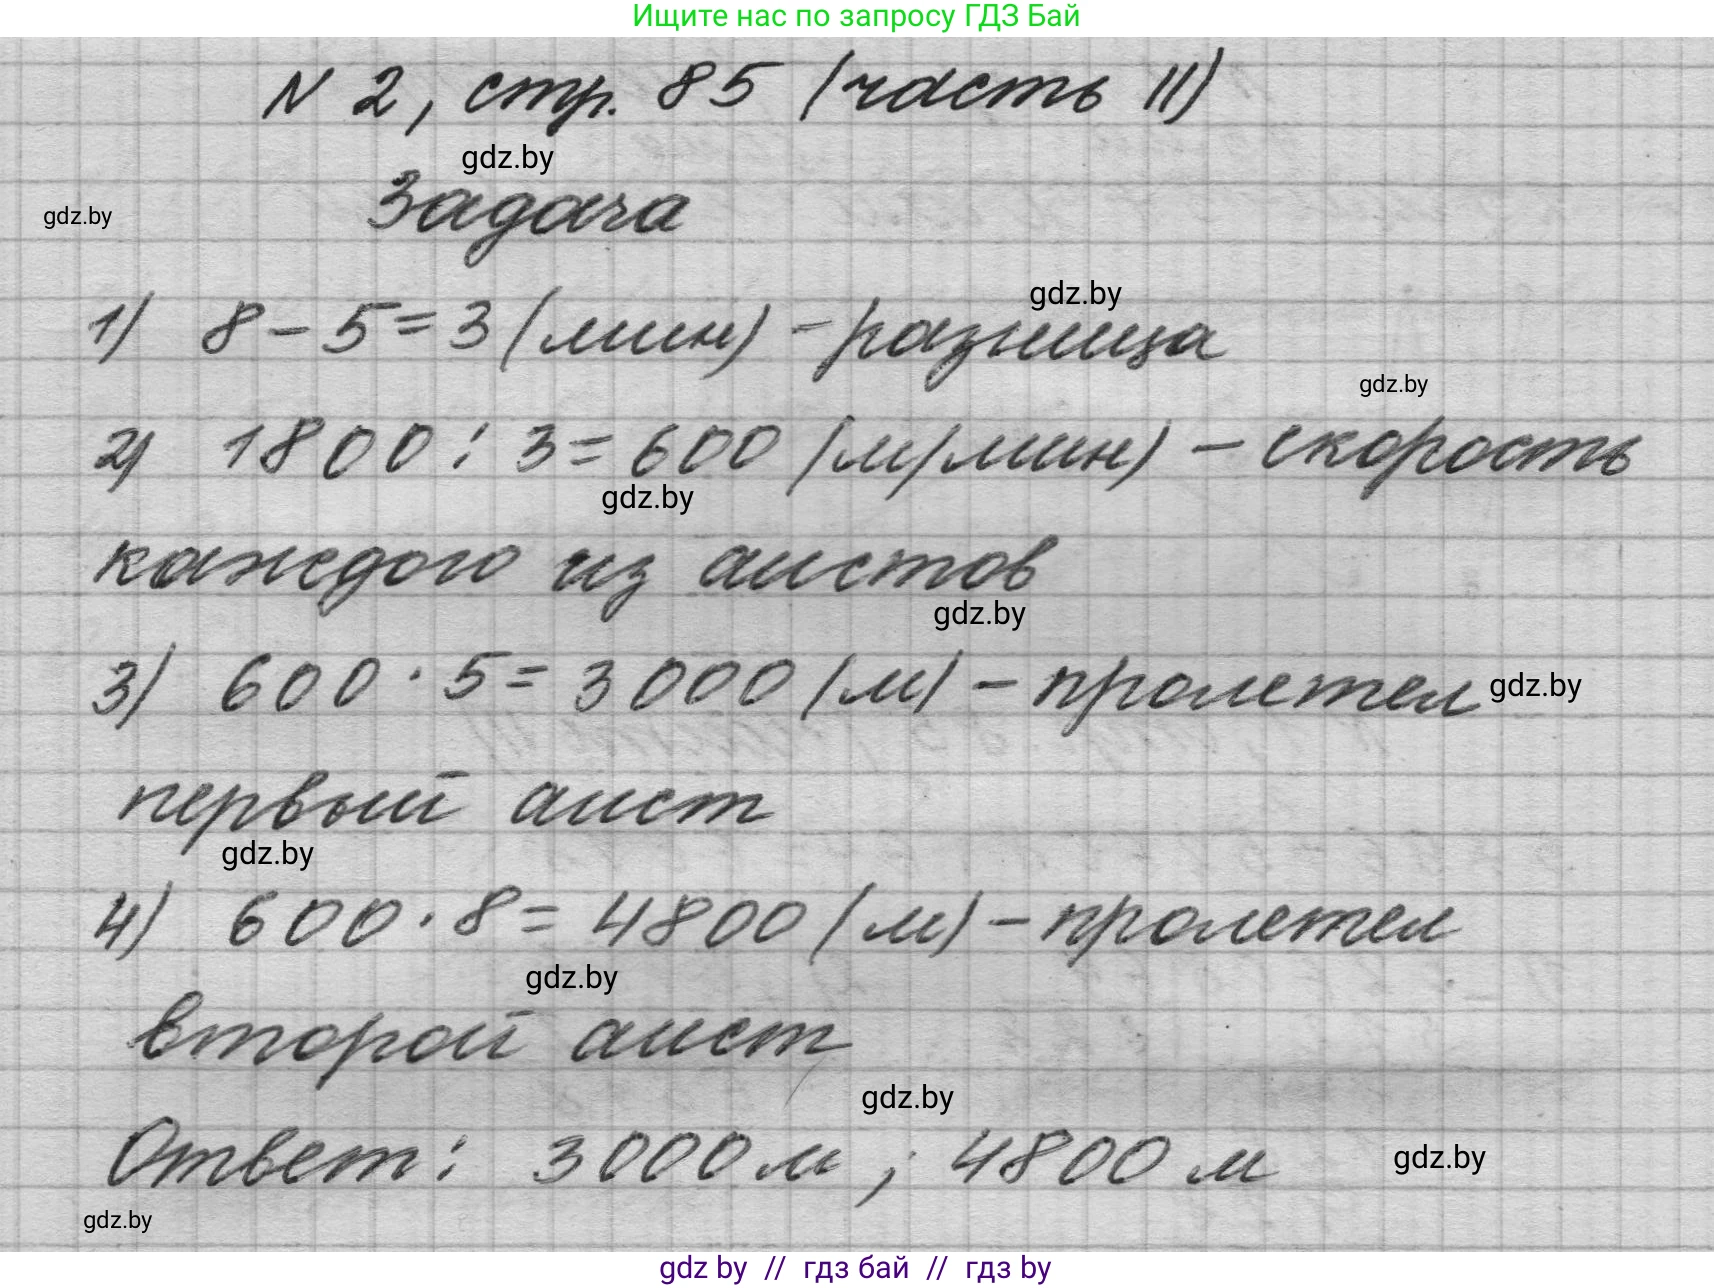 Ищите нас по запросу ГДЗ Бай
N 2, стр. 85 (часть II)
gdz.by
Задача
gdz.by
gdz.by
1) 8 - 5 = 3 (мин) - разница
gdz.by
2) 1800 : 3 = 600 (м/мин) - скорость
gdz.by
каждого из аистов
gdz.by
3) 600 · 5 = 3000 (м) - пролетел
gdz.by
первый аист
gdz.by
4) 600 · 8 = 4800 (м) - пролетел
gdz.by
второй аист
gdz.by
Ответ: 3000 м ; 4800 м
gdz.by
gdz.by
gdz by // гдз бай // гдз by